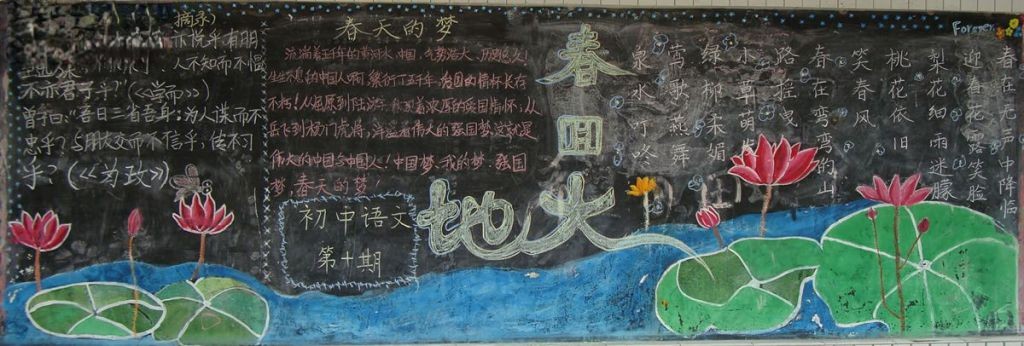 摘录)
亦悦乎有朋
人不知而不愠
不亦君子乎?(《学而》)
曾子曰:“吾日三省吾身:为人谋而不
忠乎?与朋友交而不信乎,传不习
乎?(《为政》)
春天的梦
流淌着五千年的黄河水,中国,气势浩大,历观悠久!
生生不息的中国人啊,繁衍了五千年,爱国的情怀长存
不朽!从屈原到陆游,着浓厚的爱国情怀;从
岳飞到杨门虎将,洋溢着伟大的强国梦,这就是
伟大的中国与中国人!中国梦,我的梦,强国
梦,春天的梦!
初中语文
第十期
春回大地
Forever
春在元三中阵临
迎春花露笑脸
梨花细雨迷朦
桃花依旧
笑春风
春在弯弯的山
路摇曳
小草萌
绿柳柔媚
莺歌燕舞
泉水叮咚